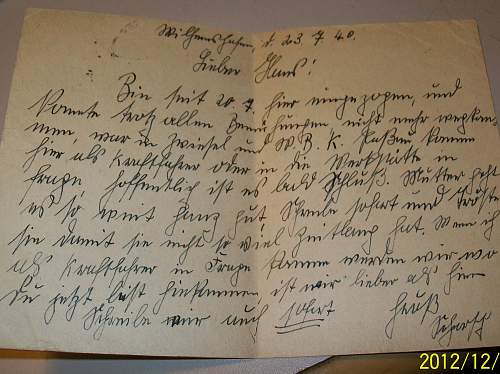 Wilhelmshafen, d. 23. 7. 40.
Lieber Hans!
Bin seit 20. 7. hier eingezogen, und
konnte trotz allen Bemühungen nicht mehr wegkom-
men, war in Zwiesel und W.B.K. Paßau komme
hier als Kraftfahrer oder in die Werkstätte in
frage hoffentlich ist es bald Schluß. Mutter geht
es so weit ganz gut. Schreibe sofort und tröste
sie damit sie nicht so viel Zeitlang hat. Wenn ich
als Kraftfahrer in Frage komme werden wir wo
Du jetzt bist hinkommen, ist mir lieber als hier
Schreibe mir auch sofort Gruß
2012/12/